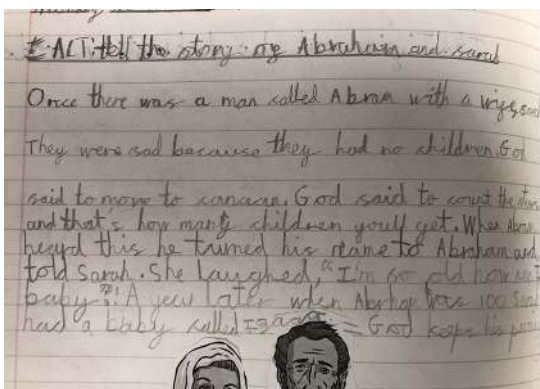 I: ACT: tell the story of Abraham and Sarah
Once there was a man called Abram with a wife,
They were sad because they had no children. God
said to move to canaan. God said to count the stars
and that's how many children youll get. When Abram
heard this he turned his name to Abraham and
told Sarah. She laughed, "I'm so old how
baby"?! A year later when Abraham was 100 Sarah
had a baby called Isaac God keeps his